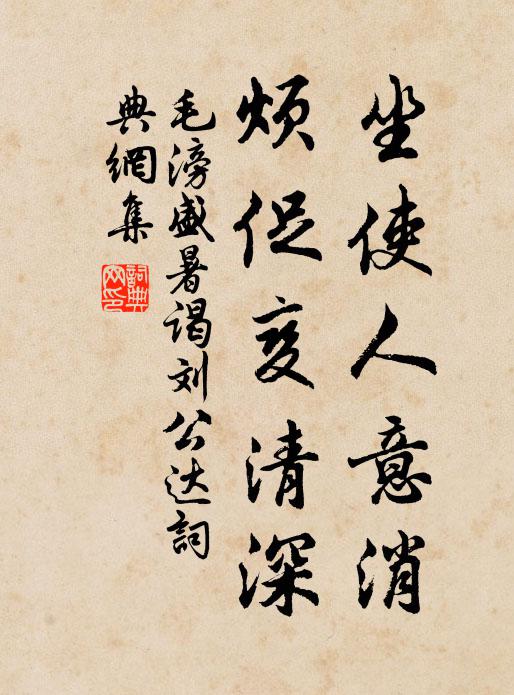 坐使人意消
烦促变清深
毛滂盛暑谒刘公达詞
典網集
詞典
网印